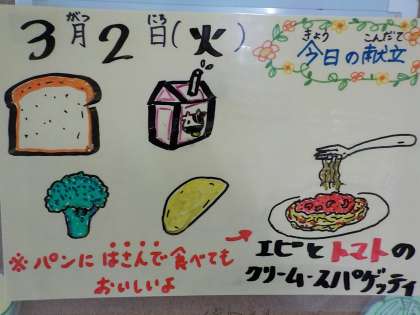 3月2日(火)
がつ にち
きょう こんだて
今日の献立
エビとトマトの
クリームースパゲッティ
※パンにはさんで食べても
おいしいよ